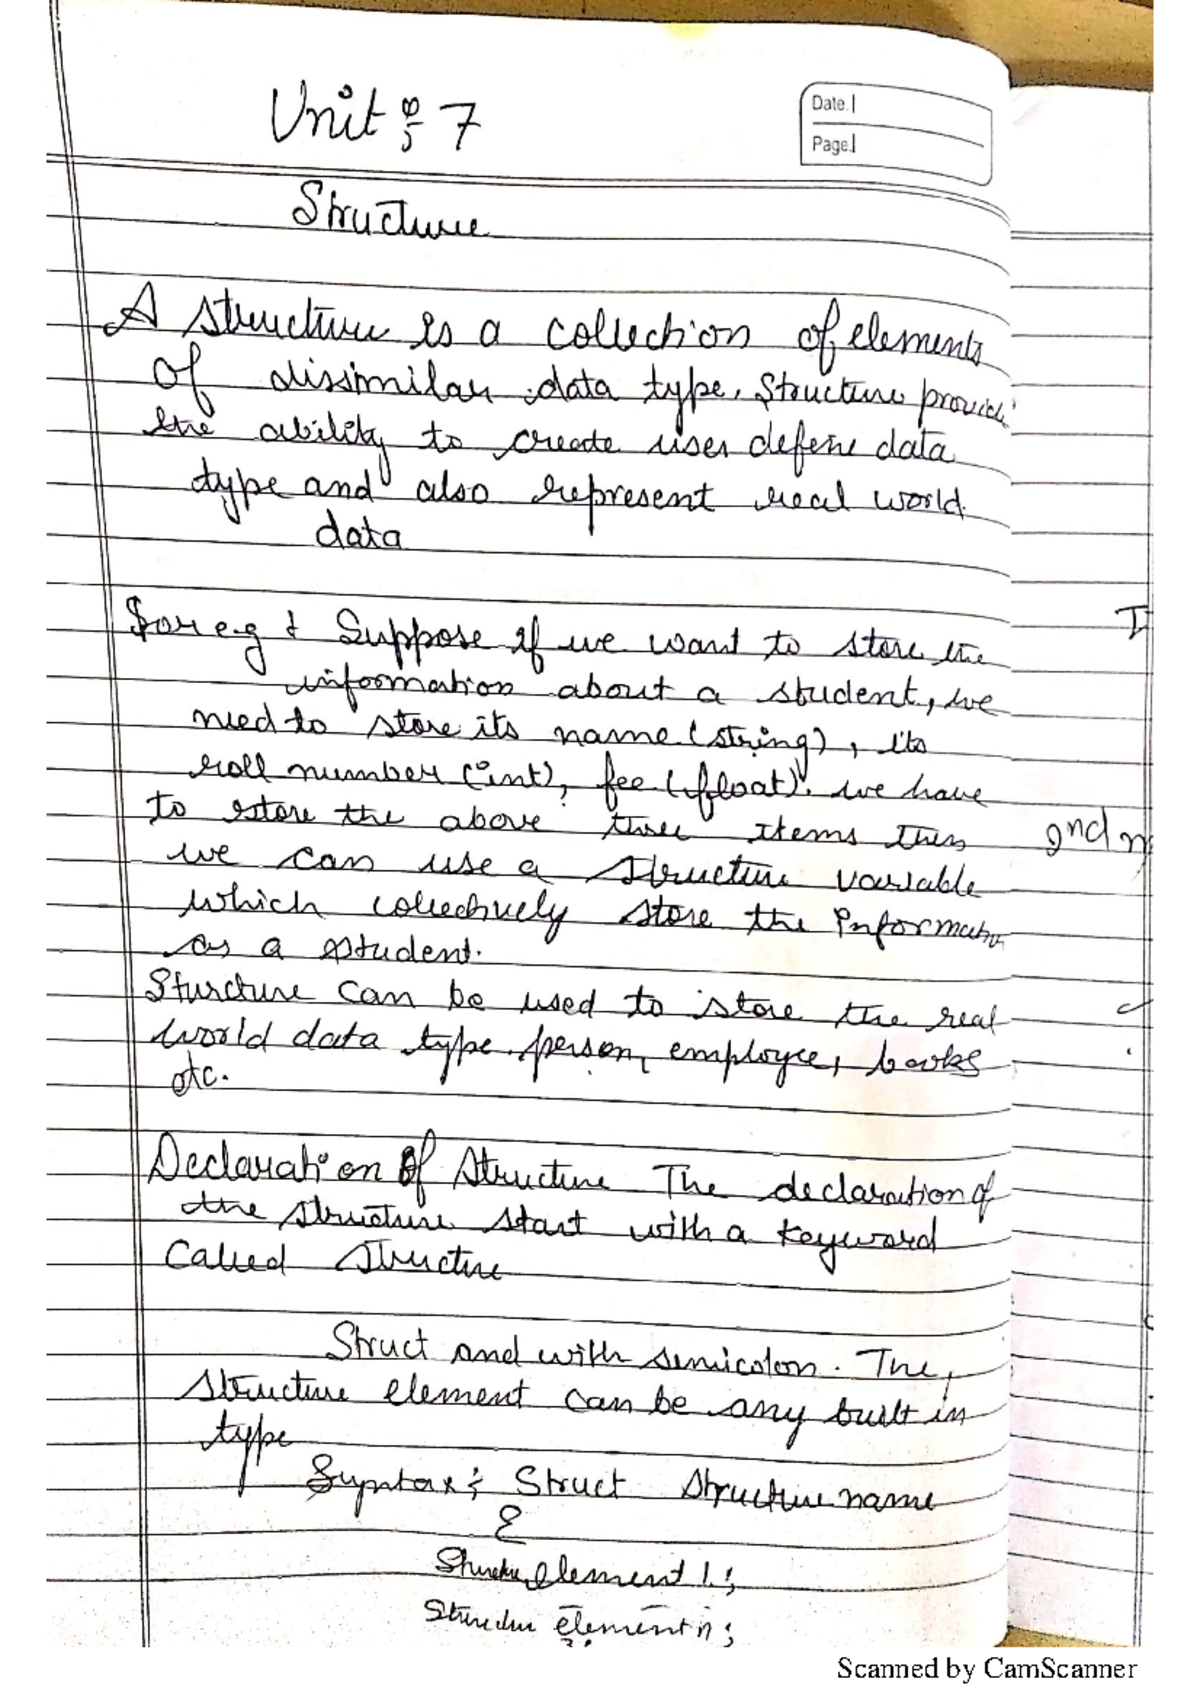 Unit : 7
Date.
Page.
Structure
A structure is a collection of elements
of dissimilar data type. Structure provid
the ability to create user define data
type and also represent real world
data
For e.g : Suppose if we want to store the
information about a student, we
need to store its name (string), its
roll number (int), fee (float). we have
to store the above three items then
we can use a structure variable
which collectively store the Informatn
as a student.
Sturcture can be used to store the real
world data type person, employee, books
etc.
Declaration Of structure The declaration of
the structure start with a keyword
Called structure
Struct and with semicolon. The,
structure element can be any built in
type
Syntax : Struct structure name
{
Structure element 1 ;
Structure element n ;
I
2nd
Scanned by CamScanner